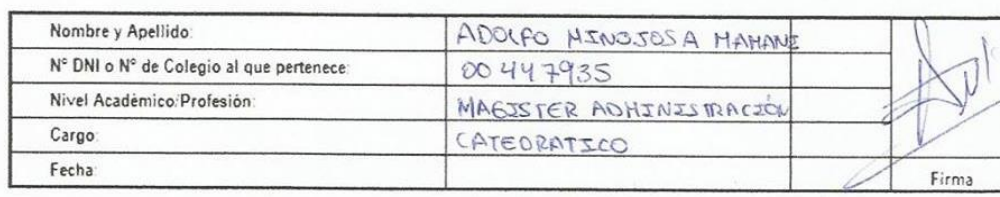 Nombre y Apellido: ADOLFO HINOJOSA MAMANI
N° DNI o N° de Colegio al que pertenece: 00447935
Nivel Académico/Profesión: MAGISTER ADMINISTRACIÓN
Cargo: CATEDRATICO
Fecha:
Firma